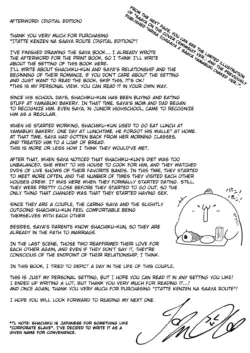 AFTERWORD: (DIGITAL EDITION)
THANK YOU VERY MUCH FOR PURCHASING
"ITATTE KENZEN NA SAAYA ROUTE (DIGITAL EDITION)"!
I'VE FINISHED DRAWING THE SAYA BOOK... I ALREADY WROTE
THE AFTERWORD FOR THE PRINT BOOK, SO I THINK I'LL WRITE
ABOUT THE SETTING OF THIS BOOK HERE.
I'LL WRITE ABOUT SHACHIKU-KUN AND SAYA'S RELATIONSHIP AND THE
BEGINNING OF THEIR ROMANCE. IF YOU DON'T CARE ABOUT THE SETTING
AND JUST WANT TO READ THE BOOK, SKIP THIS, IT'S OK!
*THIS IS MY PERSONAL VIEW. YOU CAN READ IT IN YOUR OWN WAY.
SINCE HIS SCHOOL DAYS, SHACHIKU-KUN HAS BEEN BUYING AND EATING
STUFF AT YAMABUKI BAKERY. IN THAT TIME, SAYA'S MOM AND DAD BEGAN
TO RECOGNIZE HIM. EVEN SAYA, IN JUNIOR HIGHSCHOOL, CAME TO RECOGNIZE
HIM AS A REGULAR.
WHEN HE STARTED WORKING, SHACHIKU-KUN USED TO GO EAT LUNCH AT
YAMABUKI BAKERY. ONE DAY AT LUNCHTIME, HE FORGOT HIS WALLET AT HOME.
AT THAT TIME, SAYA HAD GOTTEN BACK FROM HER MORNING CLASSES,
AND TREATED HIM TO A LOAF OF BREAD.
THIS IS MORE OR LESS HOW I THINK THEY WOULD'VE MET.
AFTER THAT, WHEN SAYA NOTICED THAT SHACHIKU-KUN'S DIET WAS TOO
UNBALANCED, SHE WENT TO HIS HOUSE TO COOK FOR HIM, AND THEY WATCHED
DVDS OF LIVE SHOWS OF THEIR FAVORITE BANDS. IN THIS TIME, THEY STARTED
TO MEET MORE OFTEN, AND THE NUMBER OF TIMES THEY VISITED EACH OTHER
HOUSES GREW. IT WAS HERE WHEN THEY FORMALLY STARTED DATING. STILL,
THEY WERE PRETTY CLOSE BEFORE THEY STARTED TO GO OUT, SO THE
ONLY THING THAT CHANGED WAS THAT THEY STARTED HAVING SEX.
SINCE THEY ARE A COUPLE, THE CARING SAYA AND THE SLIGHTLY
OUTGOING SHACHIKU-KUN FEEL COMFORTABLE BEING
THEMSELVES WITH EACH OTHER
BESIDES, SAYA'S PARENTS KNOW SHACHIKU-KUN, SO THEY ARE
ALREADY IN THE PATH TO MARRIAGE.
IN THE LAST SCENE, THOSE TWO REAFFIRMED THEIR LOVE FOR
EACH OTHER AGAIN, AND EVEN IF THEY DON'T SAY IT, THEY'RE
CONSCIOUS OF THE ENDPOINT OF THEIR RELATIONSHIP, I THINK.
IN THIS BOOK, I TRIED TO DEPICT A DAY IN THE LIFE OF THIS COUPLE.
THIS IS JUST MY PERSONAL SETTING, BUT I HOPE YOU CAN READ IT IN ANY SETTING YOU LIKE!
I ENDED UP WRITING A LOT, BUT THANK YOU VERY MUCH FOR READING IT...!
AND ONCE AGAIN, THANK YOU VERY MUCH FOR PURCHASING "ITATTE KENZEN NA SAAYA ROUTE"!
I HOPE YOU WILL LOOK FORWARD TO READING MY NEXT ONE.
*TL NOTE: SHACHIKU IS JAPANESE FOR SOMETHING LIKE
"CORPORATE SLAVE". I'VE DECIDED TO WRITE IT AS A
GIVEN NAME FOR CONVENIENCE.